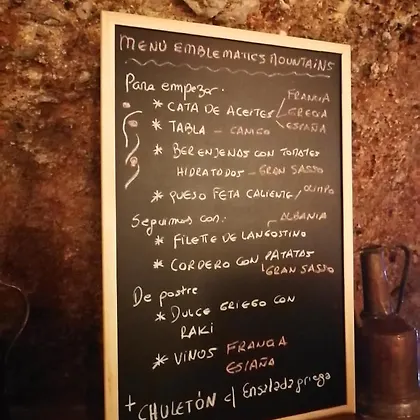 MENÚ EMBLEMATICS MOUNTAINS
Para empezar.
* CATA DE ACEITES FRANCIA
GRECIA
ESPAÑA
* TABLA - CANGO
* BERENJENAS CON TOMATES
HIDRATADOS - GRAN SASSO
* QUESO FETA CALIENTE / OLIMPO
Seguimos con: ALBANIA
* FILETE DE LANGOSTINO
* CORDERO CON PATATAS
GRAN SASSO
De postre
* DULCE GRIEGO CON
RAKI
* VINOS FRANCIA
ESPAÑA
+ CHULETÓN c/ Ensalada griega